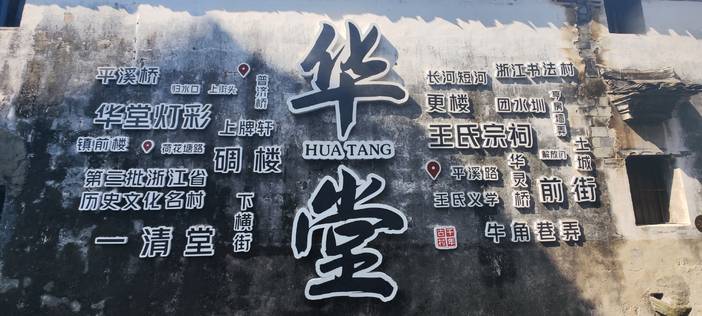 平溪桥
归水口
上街头
普济桥
华堂灯彩
上牌轩
镇前楼
荷花塘路
碉楼
第三批浙江省
历史文化名村
下横街
一清堂
华
HUA TANG
堂
长河短河
浙江书法村
更楼
团水圳
王氏宗祠
解放门
土城
平溪路
华灵桥
王氏义学
前街
千年古村
牛角巷弄